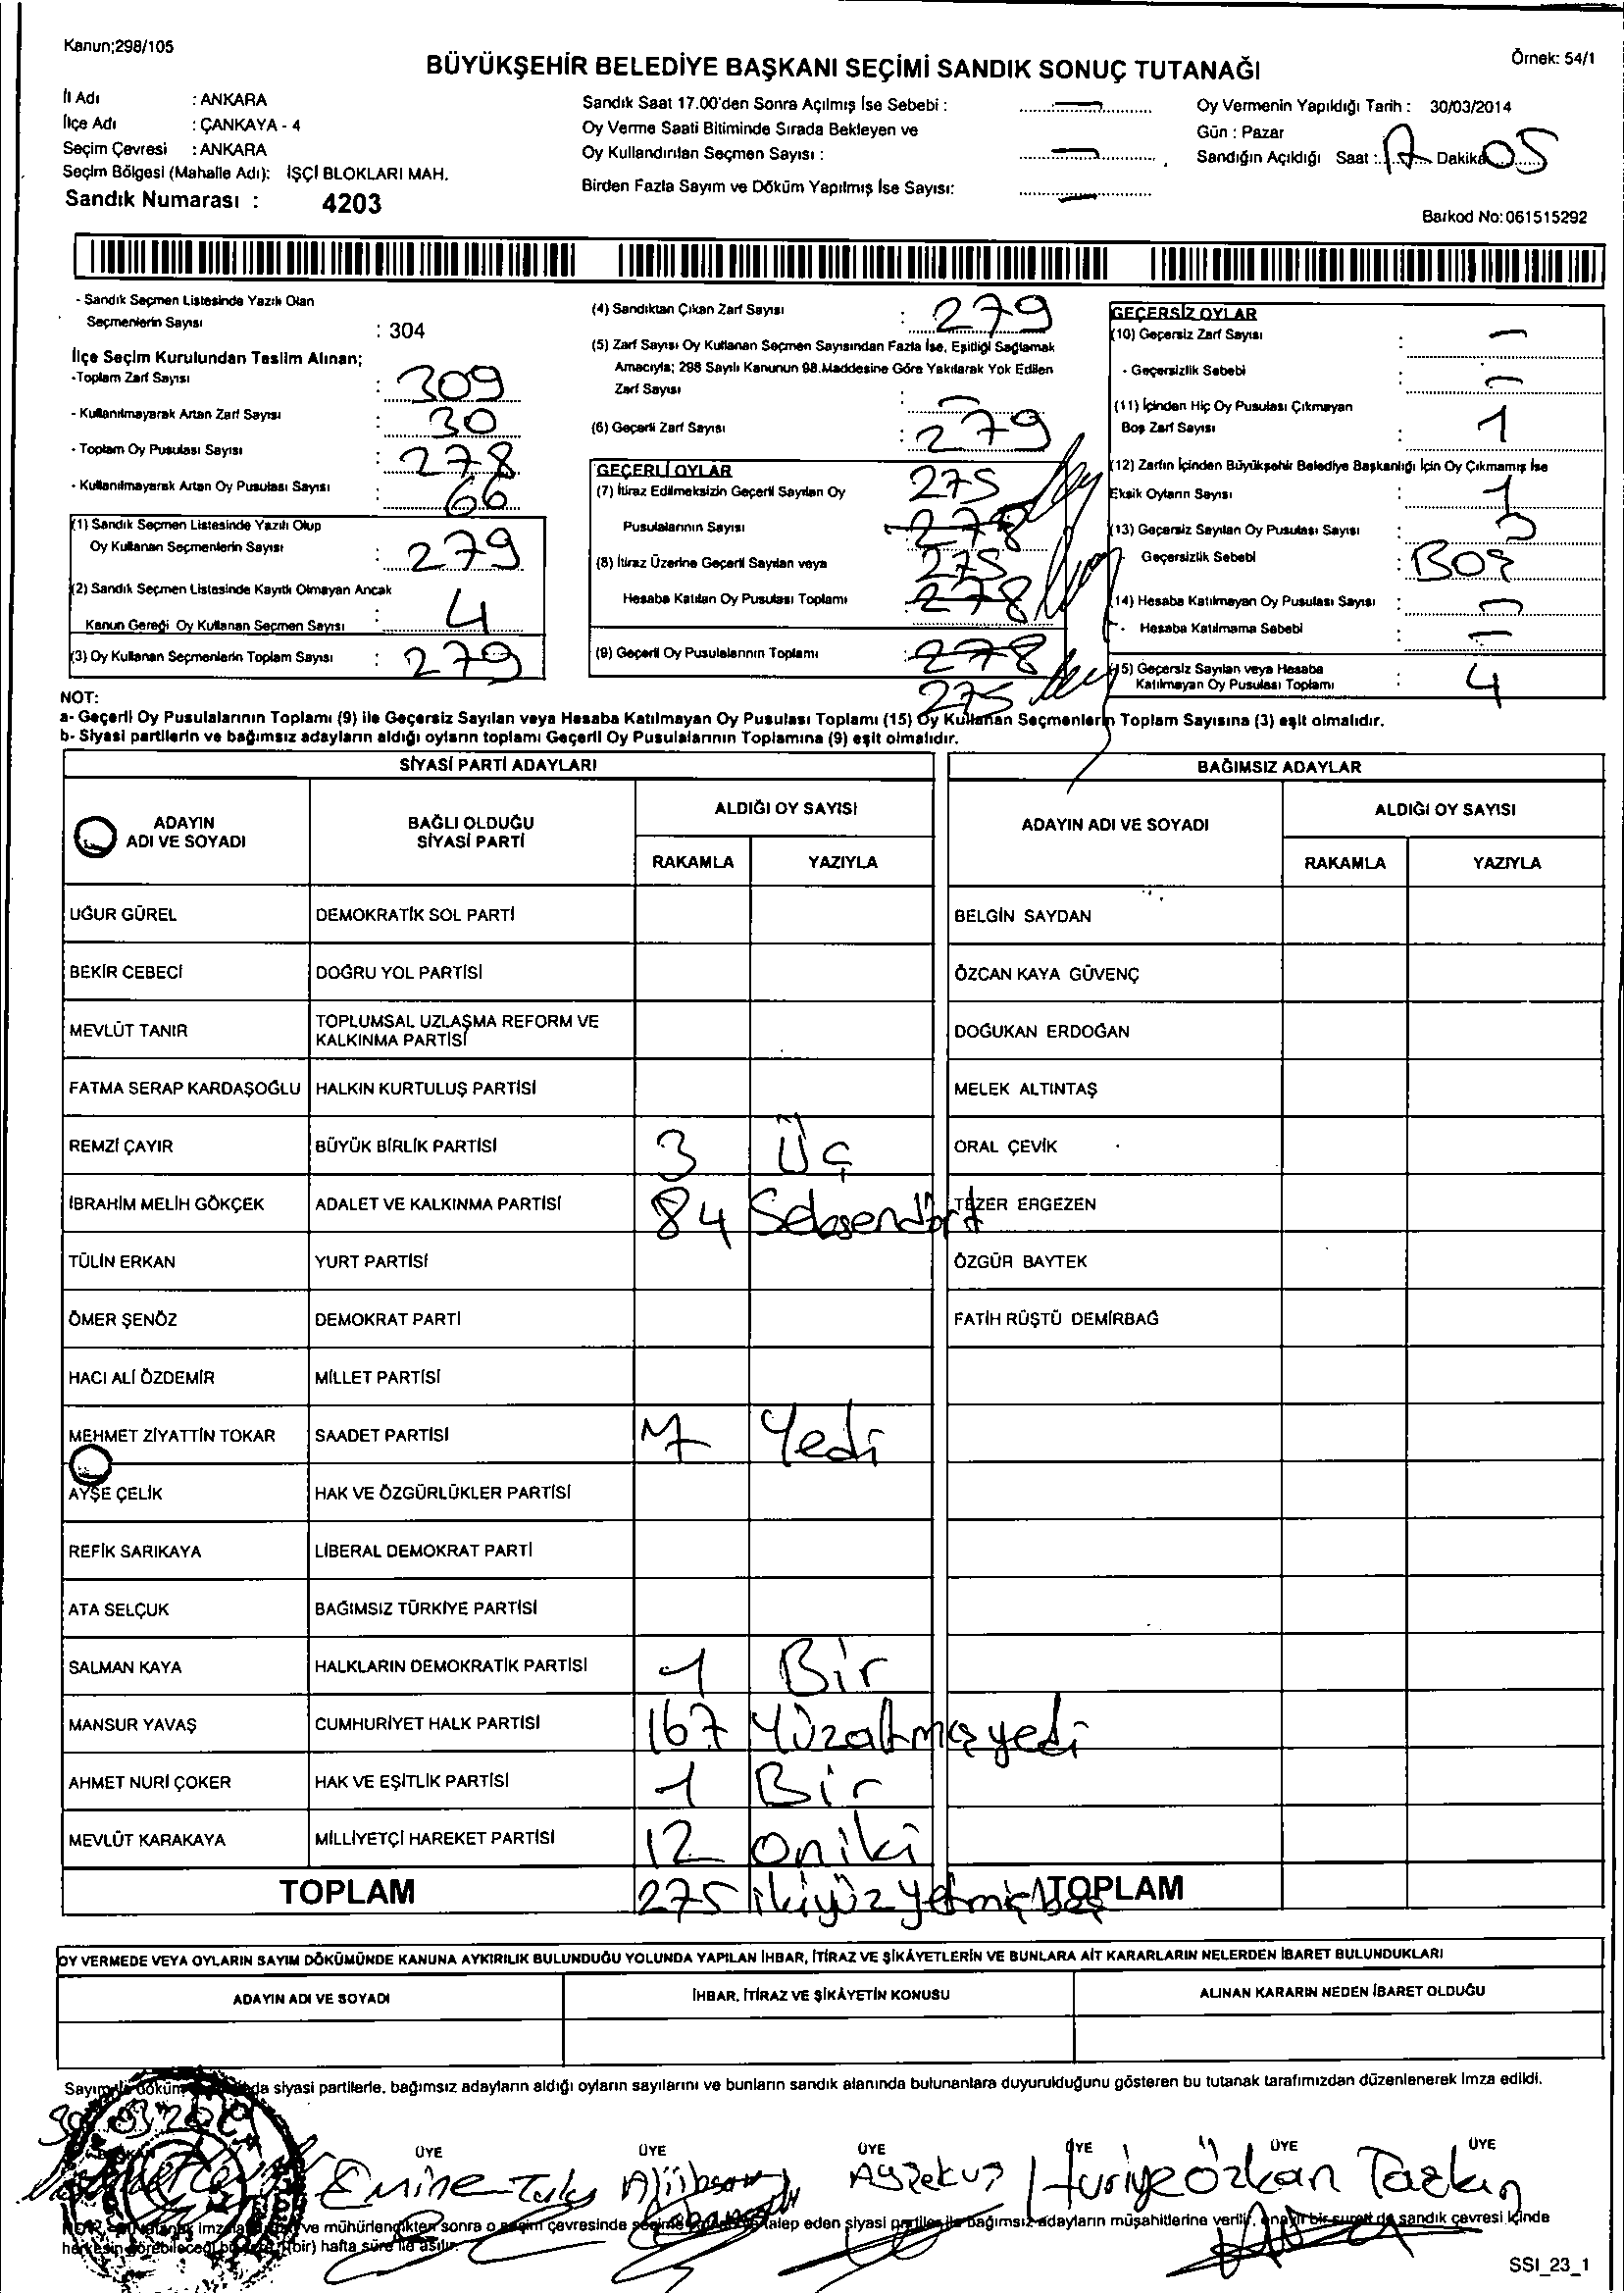 Kanun;298/105
Örnek: 54/1
BÜYÜKŞEHİR BELEDİYE BAŞKANI SEÇİMİ SANDIK SONUÇ TUTANAĞI
İl Adı : ANKARA
İlçe Adı : ÇANKAYA - 4
Seçim Çevresi : ANKARA
Seçim Bölgesi (Mahalle Adı): İŞÇİ BLOKLARI MAH.
Sandık Numarası : 4203
Sandık Saat 17.00'den Sonra Açılmış İse Sebebi : —
Oy Verme Saati Bitiminde Sırada Bekleyen ve
Oy Kullandırılan Seçmen Sayısı : —
Birden Fazla Sayım ve Döküm Yapılmış İse Sayısı: —
Oy Vermenin Yapıldığı Tarih : 30/03/2014
Gün : Pazar
Sandığın Açıldığı Saat : 17 Dakika 05
Barkod No: 061515292
- Sandık Seçmen Listesinde Yazılı Olan
Seçmenlerin Sayısı : 304
İlçe Seçim Kurulundan Teslim Alınan;
-Toplam Zarf Sayısı : 309
- Kullanılmayarak Artan Zarf Sayısı : 30
- Toplam Oy Pusulası Sayısı : 278
- Kullanılmayarak Artan Oy Pusulası Sayısı : 66
(1) Sandık Seçmen Listesinde Yazılı Olup
Oy Kullanan Seçmenlerin Sayısı : 279
(2) Sandık Seçmen Listesinde Kayıtlı Olmayan Ancak
Kanun Gereği Oy Kullanan Seçmen Sayısı : 4
(3) Oy Kullanan Seçmenlerin Toplam Sayısı : 279
(4) Sandıktan Çıkan Zarf Sayısı : 279
(5) Zarf Sayısı Oy Kullanan Seçmen Sayısından Fazla İse, Eşitliği Sağlamak
Amacıyla; 298 Sayılı Kanunun 98.Maddesine Göre Yakılarak Yok Edilen
Zarf Sayısı : —
(6) Geçerli Zarf Sayısı : 279
GEÇERLİ OYLAR
(7) İtiraz Edilmeksizin Geçerli Sayılan Oy 275
Pusulalarının Sayısı 278
(8) İtiraz Üzerine Geçerli Sayılan veya 275
Hesaba Katılan Oy Pusulası Toplamı 278
(9) Geçerli Oy Pusulalarının Toplamı : 278
275
GEÇERSİZ OYLAR
(10) Geçersiz Zarf Sayısı : —
- Geçersizlik Sebebi : —
(11) İçinden Hiç Oy Pusulası Çıkmayan
Boş Zarf Sayısı : 1
(12) Zarfın İçinden Büyükşehir Belediye Başkanlığı İçin Oy Çıkmamış İse
Eksik Oyların Sayısı : 1
(13) Geçersiz Sayılan Oy Pusulası Sayısı :
Geçersizlik Sebebi : Boş
(14) Hesaba Katılmayan Oy Pusulası Sayısı : —
- Hesaba Katılmama Sebebi : —
(15) Geçersiz Sayılan veya Hesaba
Katılmayan Oy Pusulası Toplamı : 4
NOT:
a- Geçerli Oy Pusulalarının Toplamı (9) ile Geçersiz Sayılan veya Hesaba Katılmayan Oy Pusulası Toplamı (15) Oy Kullanan Seçmenlerin Toplam Sayısına (3) eşit olmalıdır.
b- Siyasi partilerin ve bağımsız adayların aldığı oyların toplamı Geçerli Oy Pusulalarının Toplamına (9) eşit olmalıdır.
SİYASİ PARTİ ADAYLARI
ADAYIN ADI VE SOYADI BAĞLI OLDUĞU SİYASİ PARTİ ALDIĞI OY SAYISI
RAKAMLA YAZIYLA
UĞUR GÜREL DEMOKRATİK SOL PARTİ
BEKİR CEBECİ DOĞRU YOL PARTİSİ
MEVLÜT TANIR TOPLUMSAL UZLAŞMA REFORM VE KALKINMA PARTİSİ
FATMA SERAP KARDAŞOĞLU HALKIN KURTULUŞ PARTİSİ
REMZİ ÇAYIR BÜYÜK BİRLİK PARTİSİ 3 Üç
İBRAHİM MELİH GÖKÇEK ADALET VE KALKINMA PARTİSİ 84 Seksendört
TÜLİN ERKAN YURT PARTİSİ
ÖMER ŞENÖZ DEMOKRAT PARTİ
HACI ALİ ÖZDEMİR MİLLET PARTİSİ
MEHMET ZİYATTİN TOKAR SAADET PARTİSİ 7 Yedi
AYŞE ÇELİK HAK VE ÖZGÜRLÜKLER PARTİSİ
REFİK SARIKAYA LİBERAL DEMOKRAT PARTİ
ATA SELÇUK BAĞIMSIZ TÜRKİYE PARTİSİ
SALMAN KAYA HALKLARIN DEMOKRATİK PARTİSİ 1 Bir
MANSUR YAVAŞ CUMHURİYET HALK PARTİSİ 167 Yüzaltmışyedi
AHMET NURİ ÇOKER HAK VE EŞİTLİK PARTİSİ 1 Bir
MEVLÜT KARAKAYA MİLLİYETÇİ HAREKET PARTİSİ 12 oniki
TOPLAM 275 ikiyüzyetmişbeş
BAĞIMSIZ ADAYLAR
ADAYIN ADI VE SOYADI ALDIĞI OY SAYISI
RAKAMLA YAZIYLA
BELGİN SAYDAN
ÖZCAN KAYA GÜVENÇ
DOĞUKAN ERDOĞAN
MELEK ALTINTAŞ
ORAL ÇEVİK
TEZER ERGEZEN
ÖZGÜR BAYTEK
FATİH RÜŞTÜ DEMİRBAĞ
TOPLAM
OY VERMEDE VEYA OYLARIN SAYIM DÖKÜMÜNDE KANUNA AYKIRILIK BULUNDUĞU YOLUNDA YAPILAN İHBAR, İTİRAZ VE ŞİKÂYETLERİN VE BUNLARA AİT KARARLARIN NELERDEN İBARET BULUNDUKLARI
ADAYIN ADI VE SOYADI İHBAR, İTİRAZ VE ŞİKÂYETİN KONUSU ALINAN KARARIN NEDEN İBARET OLDUĞU
siyasi partilerle, bağımsız adayların aldığı oyların sayılarını ve bunların sandık alanında bulunanlara duyurulduğunu gösteren bu tutanak tarafımızdan düzenlenerek imza edildi.
ÜYE ÜYE ÜYE ÜYE ÜYE ÜYE
Emine Huriye Özkan Taşkın
ve mühürlendikten sonra o seçim çevresinde talep eden siyasi partiler ile bağımsız adayların müşahitlerine verilir, bir sureti de sandık çevresi içinde
(bir) hafta süre ile asılır.
SSI_23_1